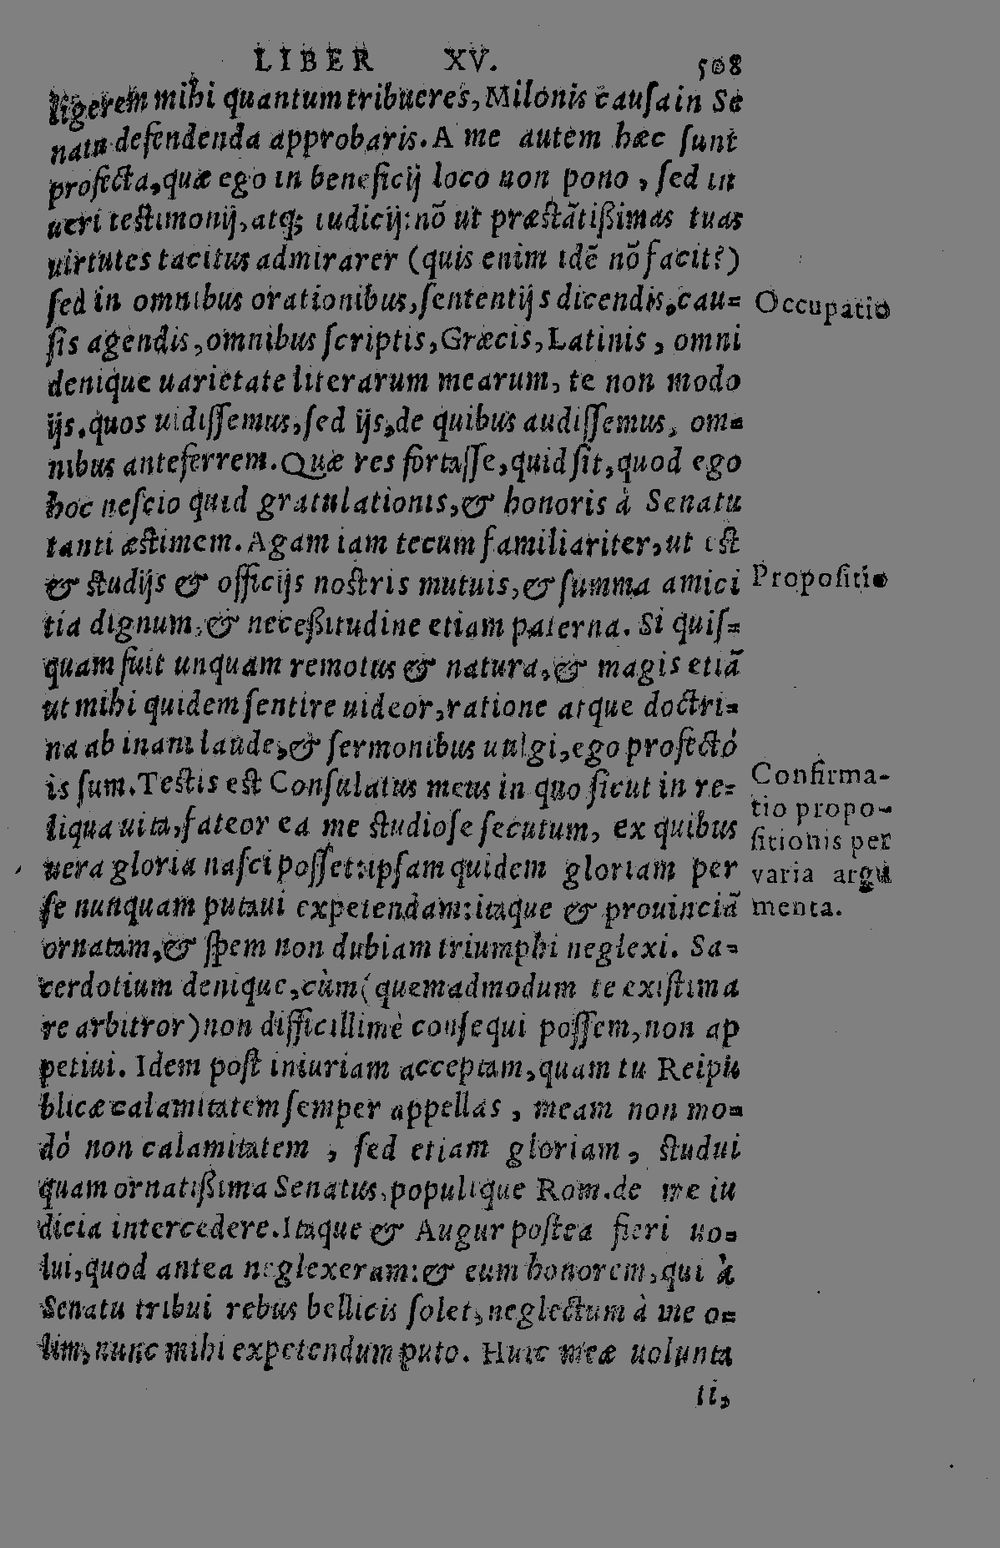 LIBER XV. 508
ligerem mihi quantum tribueres, Milonis causa in Se
natu defendenda approbaris. A me autem hæc sunt
profecta, quæ ego in beneficij loco non pono, sed in
ueri testimonij, atq; iudicij: nō ut præstātißimas tuas
uirtutes tacitus admirarer (quis enim idē nō facit?)
sed in omnibus orationibus, sententijs dicendis, cau=
sis agendis, omnibus scriptis, Græcis, Latinis, omni
denique uarietate literarum mearum, te non modo
ijs, quos uidissemus, sed ijs, de quibus audissemus, om=
nibus anteferrem. Quæ res fortasse, quid sit, quod ego
hoc nescio quid gratulationis, & honoris à Senatu
tanti æstimem. Agam iam tecum familiariter, ut est
& studijs & officijs nostris mutuis, & summa amici
tia dignum, & neceßitudine etiam paterna. Si quis=
quam fuit unquam remotus & natura, & magis etiā
ut mihi quidem sentire uideor, ratione atque doctri=
na ab inani laude, & sermonibus uulgi, ego profectò
is sum. Testis est Consulatus meus in quo sicut in re=
liqua uita, fateor ea me studiose secutum, ex quibus
uera gloria nasci posset: ipsam quidem gloriam per
se nunquam putaui expetendam: itaque & prouinciā
ornatam, & spem non dubiam triumphi neglexi. Sa=
cerdotium denique, cùm (quemadmodum te existima
re arbitror) non difficillimè consequi possem, non ap
petiui. Idem post iniuriam acceptam, quam tu Reipu
blicæ calamitatem semper appellas, meam non mo=
dò non calamitatem, sed etiam gloriam, studui
quam ornatißima Senatus, populique Rom. de me iu
dicia intercedere. Itaque & Augur postea fieri uo=
lui, quod antea neglexeram: & eum honorem, qui à
Senatu tribui rebus bellicis solet, neglectum à me o=
lim, nunc mihi expetendum puto. Huic meæ uolunta
ti,
Occupatio
Propositio
Confirma-
tio propo-
sitionis per
varia argu
menta.